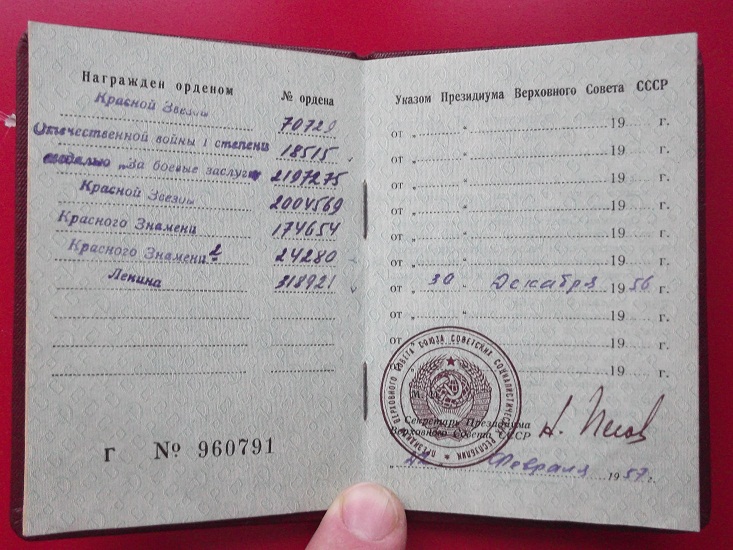 Награжден орденом № ордена
Красной Звезды
Отечественной войны I степени 18515
медалью „За боевые заслуги" 2197275
Красной Звезды 2004569
Красного Знамени 174654
Красного Знамени 2 24280
Ленина 318921
Г № 960791
Указом Президиума Верховного Совета СССР
от „ " 19 г.
от „ " 19 г.
от „ " 19 г.
от „ " 19 г.
от „ " 19 г.
от „ " 19 г.
от „ 30 " Декабря 1956 г.
от „ " 19 г.
от „ " 19 г.
„ " 19 г.
ПРЕЗИДИУМ ВЕРХОВНОГО СОВЕТА СОЮЗА СОВЕТСКИХ СОЦИАЛИСТИЧЕСКИХ РЕСПУБЛИК
Секретарь Президиума
Верховного Совета СССР
Февраля 1957 г.